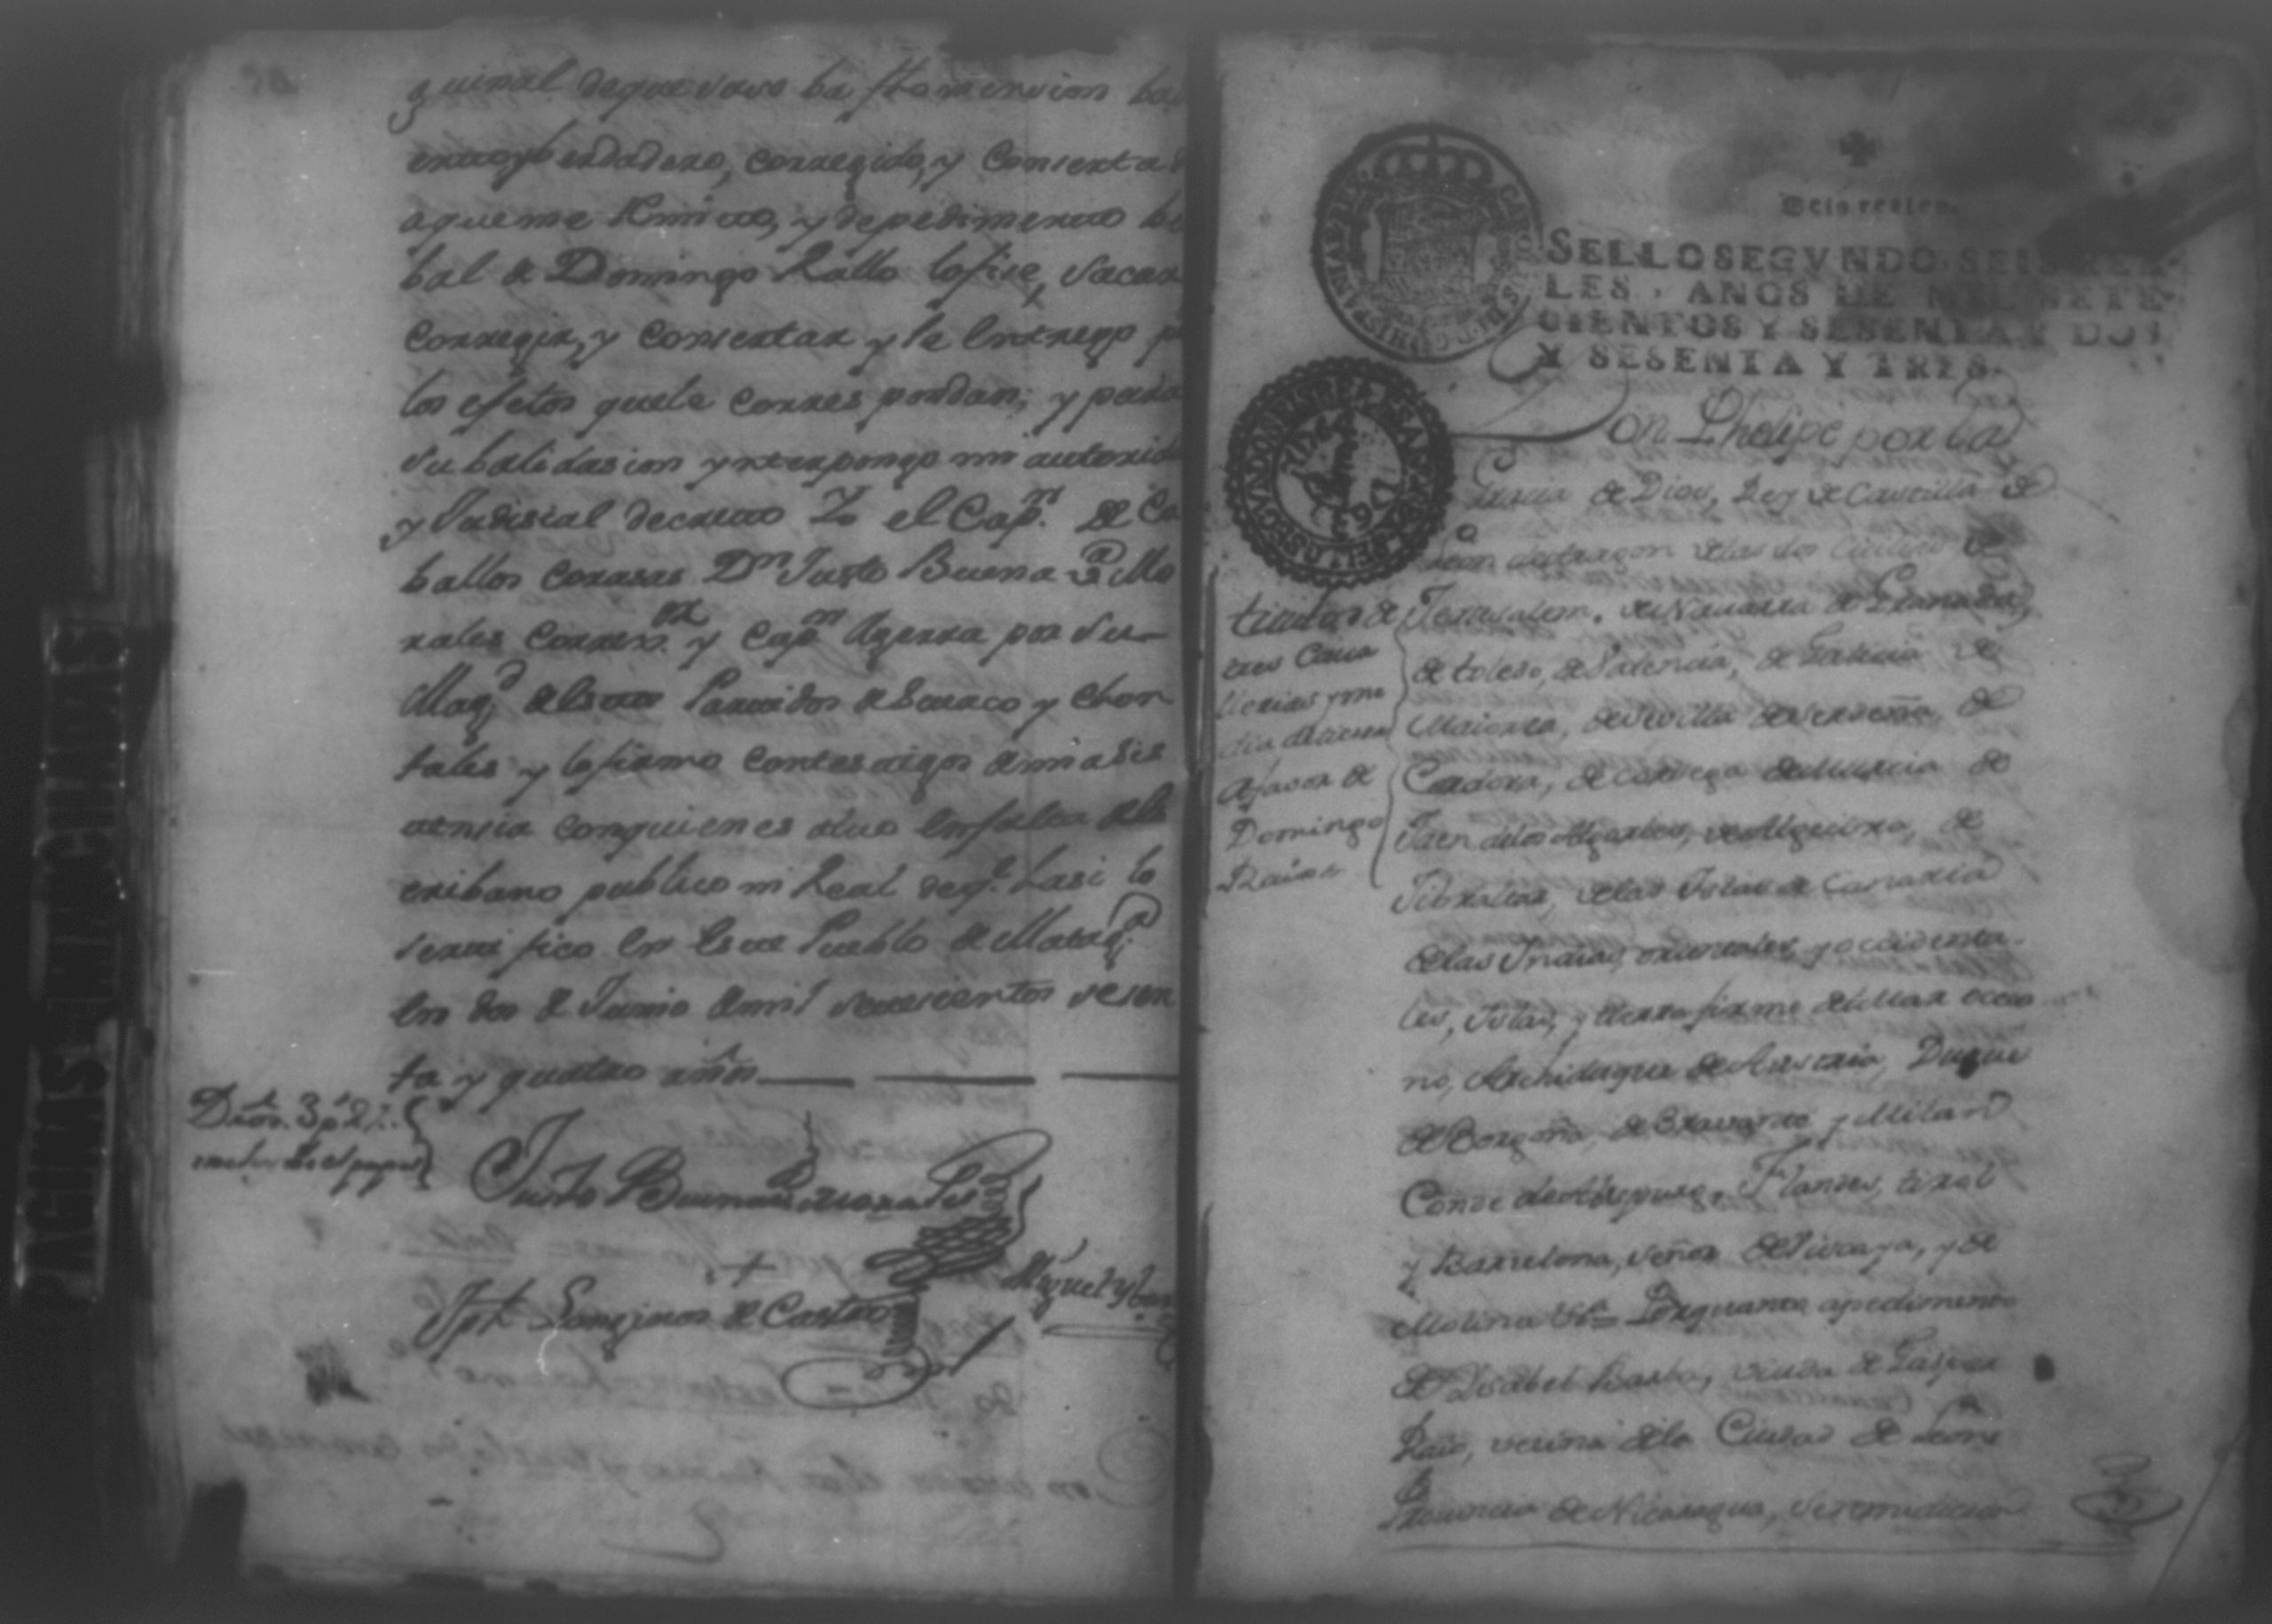 ginal de que saco ba sta mension
y berdadero, corregido, y Conserta
aqueme Rmito, y depedimento
bal de Domingo Rallo lo fise, sacar
Corregir, y consertar y le Entrego
los efetos quele corres pondan; y para
su balidasion ynterpongo mi autorid
y Judisial decreto Yo el Capn. de Ca
ballos corasas Dn Justo Buenaa. Mo
rales Corren.or y Capn Aguerra por su
Magd. de Estos Partidos de Sevaco y chon
tales y lo firmo contestigos de mi asis
tensia conquienes atuo En falta de Es
cribano publico ni Real de q.e Lasi lo
serti fico En Este Pueblo de Matagpa.
En dos de Junio de mil setesientos sesen
ta y quatro años
Dros. 3 ps 2 r.
Justo Buenaa. Morales
Jph. Longinos de Castro
Miguel
Seis reales.
SELLO SEGVNDO, SEIS REA-
LES, AÑOS DE MIL SETE-
CIENTOS Y SESENTA Y DOS,
Y SESENTA Y TRES.
Don Phelipe por la
Gracia de Dios, Rey de Castilla de
Leon de Aragon delas dos Cicilias de
Jerusalem, de Navarra de Granada,
de toledo, de Valencia, de Galicia de
Maiorca, de Sevilla de Serdeña, de
Cordova, de Corcega de Murcia de
Jaen delos Algarbes, de Algecira, de
Gibraltar, delas Islas de Canaria
delas Indias, orientales, y occidenta-
les, Islas, y tierra firme del Mar occea
no, Archiduque de Austria, Duque
de Borgoña, de Bravante y Milan
Conde de Abspurg, Flandes, tirol
y Barcelona, señor de Viscaya, y de
Molina &a Por quanto apedimento
de Isabel Barba, viuda de Gaspar
Rais, vecina dela Ciudad de Leon
Provincia de Nicaragua, se remidieron
titulos de
tres Cava
llerias y me
dia de tierra
afavor de
Domingo